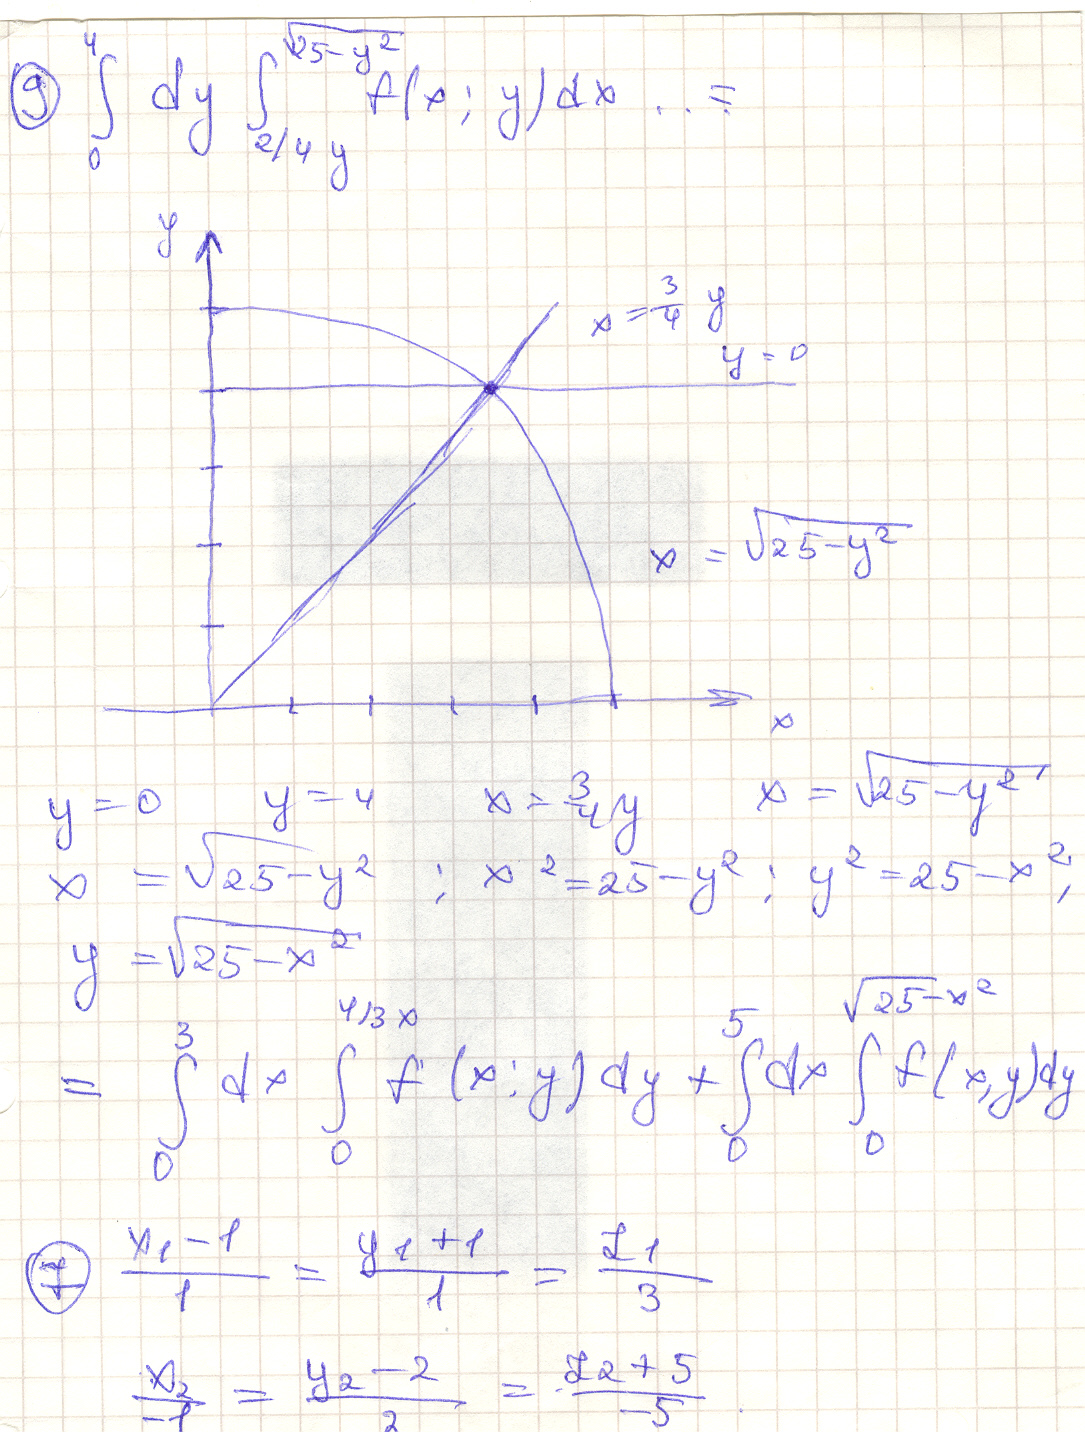 9) ∫₀⁴ dy ∫_{2/4 y}^{√(25-y²)} f(x; y)dx ... =
y
x = 3/4 y
y = 0
x = √(25-y²)
x
y = 0 y = 4 x = 3/4 y x = √(25-y²),
x = √(25-y²) ; x² = 25-y² ; y² = 25-x²,
y = √(25-x²)
= ∫₀³ dx ∫₀^{4/3 x} f (x; y) dy + ∫₀⁵ dx ∫₀^{√(25-x²)} f(x,y)dy
7) (x₁-1)/1 = (y₁+1)/1 = z₁/3
x₂/-1 = (y₂-2)/2 = (z₂+5)/-5